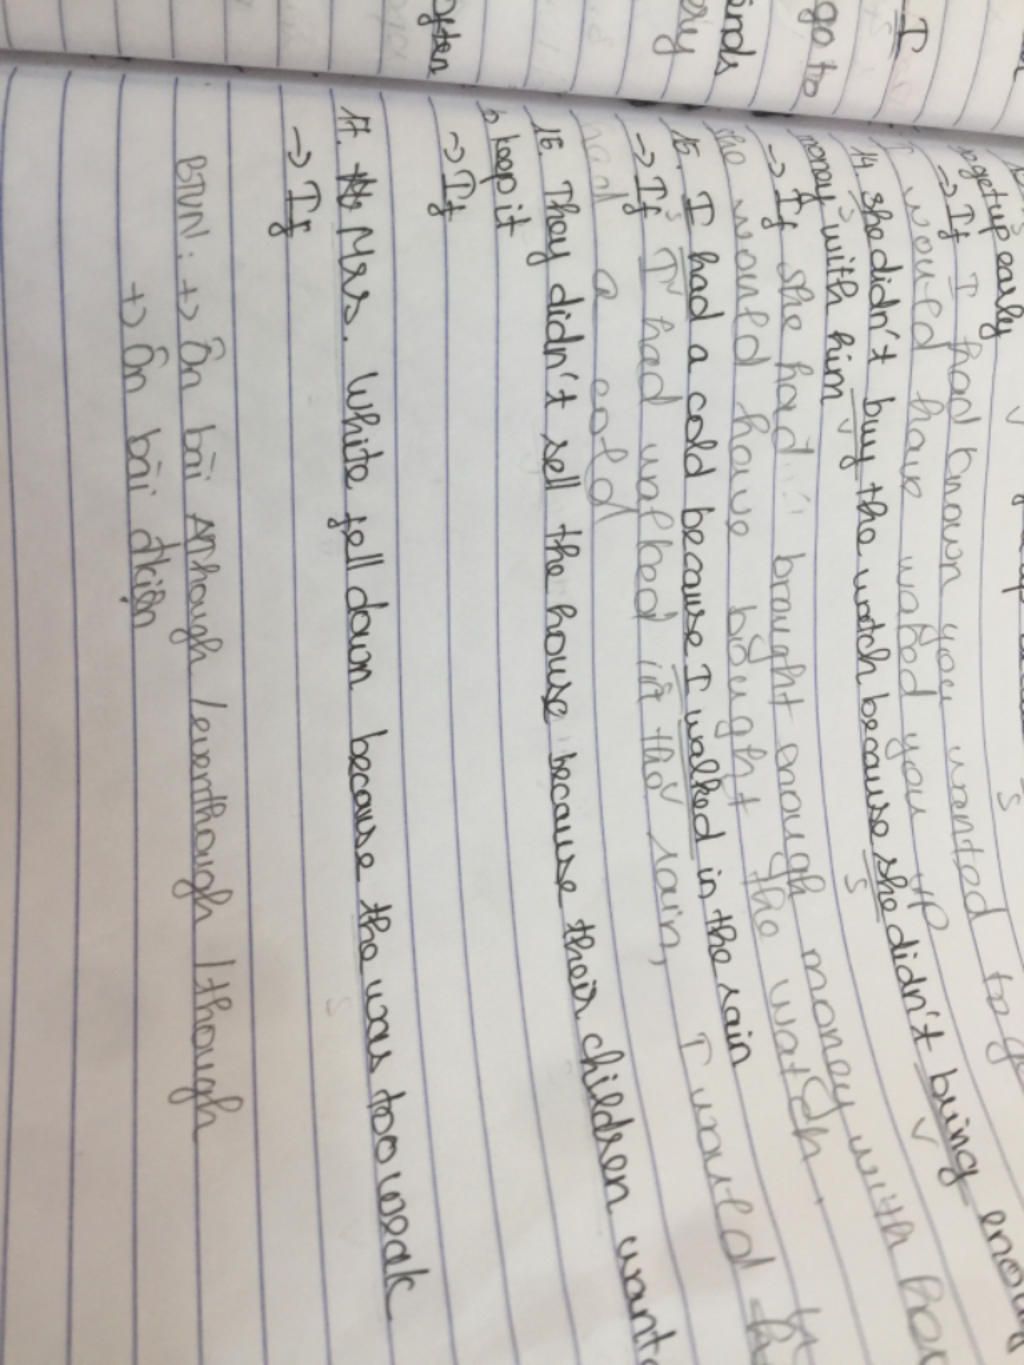 I
go to
ends
ery
often
to get up early
-> If I had known you wanted to
I would have waked you up
14. She didn't buy the watch because she didn't bring
money with him
-> If she had brought enough money with her
she would have bought the watch.
15. I had a cold because I walked in the rain
-> If I had walked in the rain, I would
had a cold
16. They didn't sell the house because their children want
to keep it
-> If
17. Mrs. White fell down because the was too weak
-> If
BTVN: +> Ôn bài Although / eventhough / though
+> Ôn bài đkiện